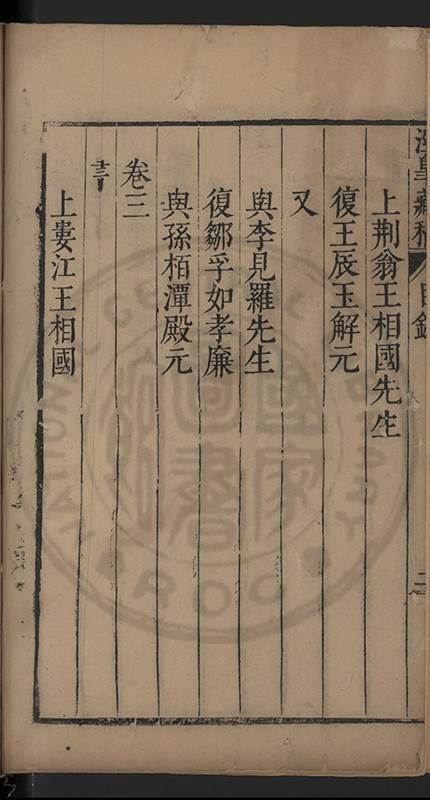 上荆翁王相國先生
復王辰玉解元
又
與李見羅先生
復鄒孚如孝廉
與孫栢潭殿元
卷三
書
上婁江王相國